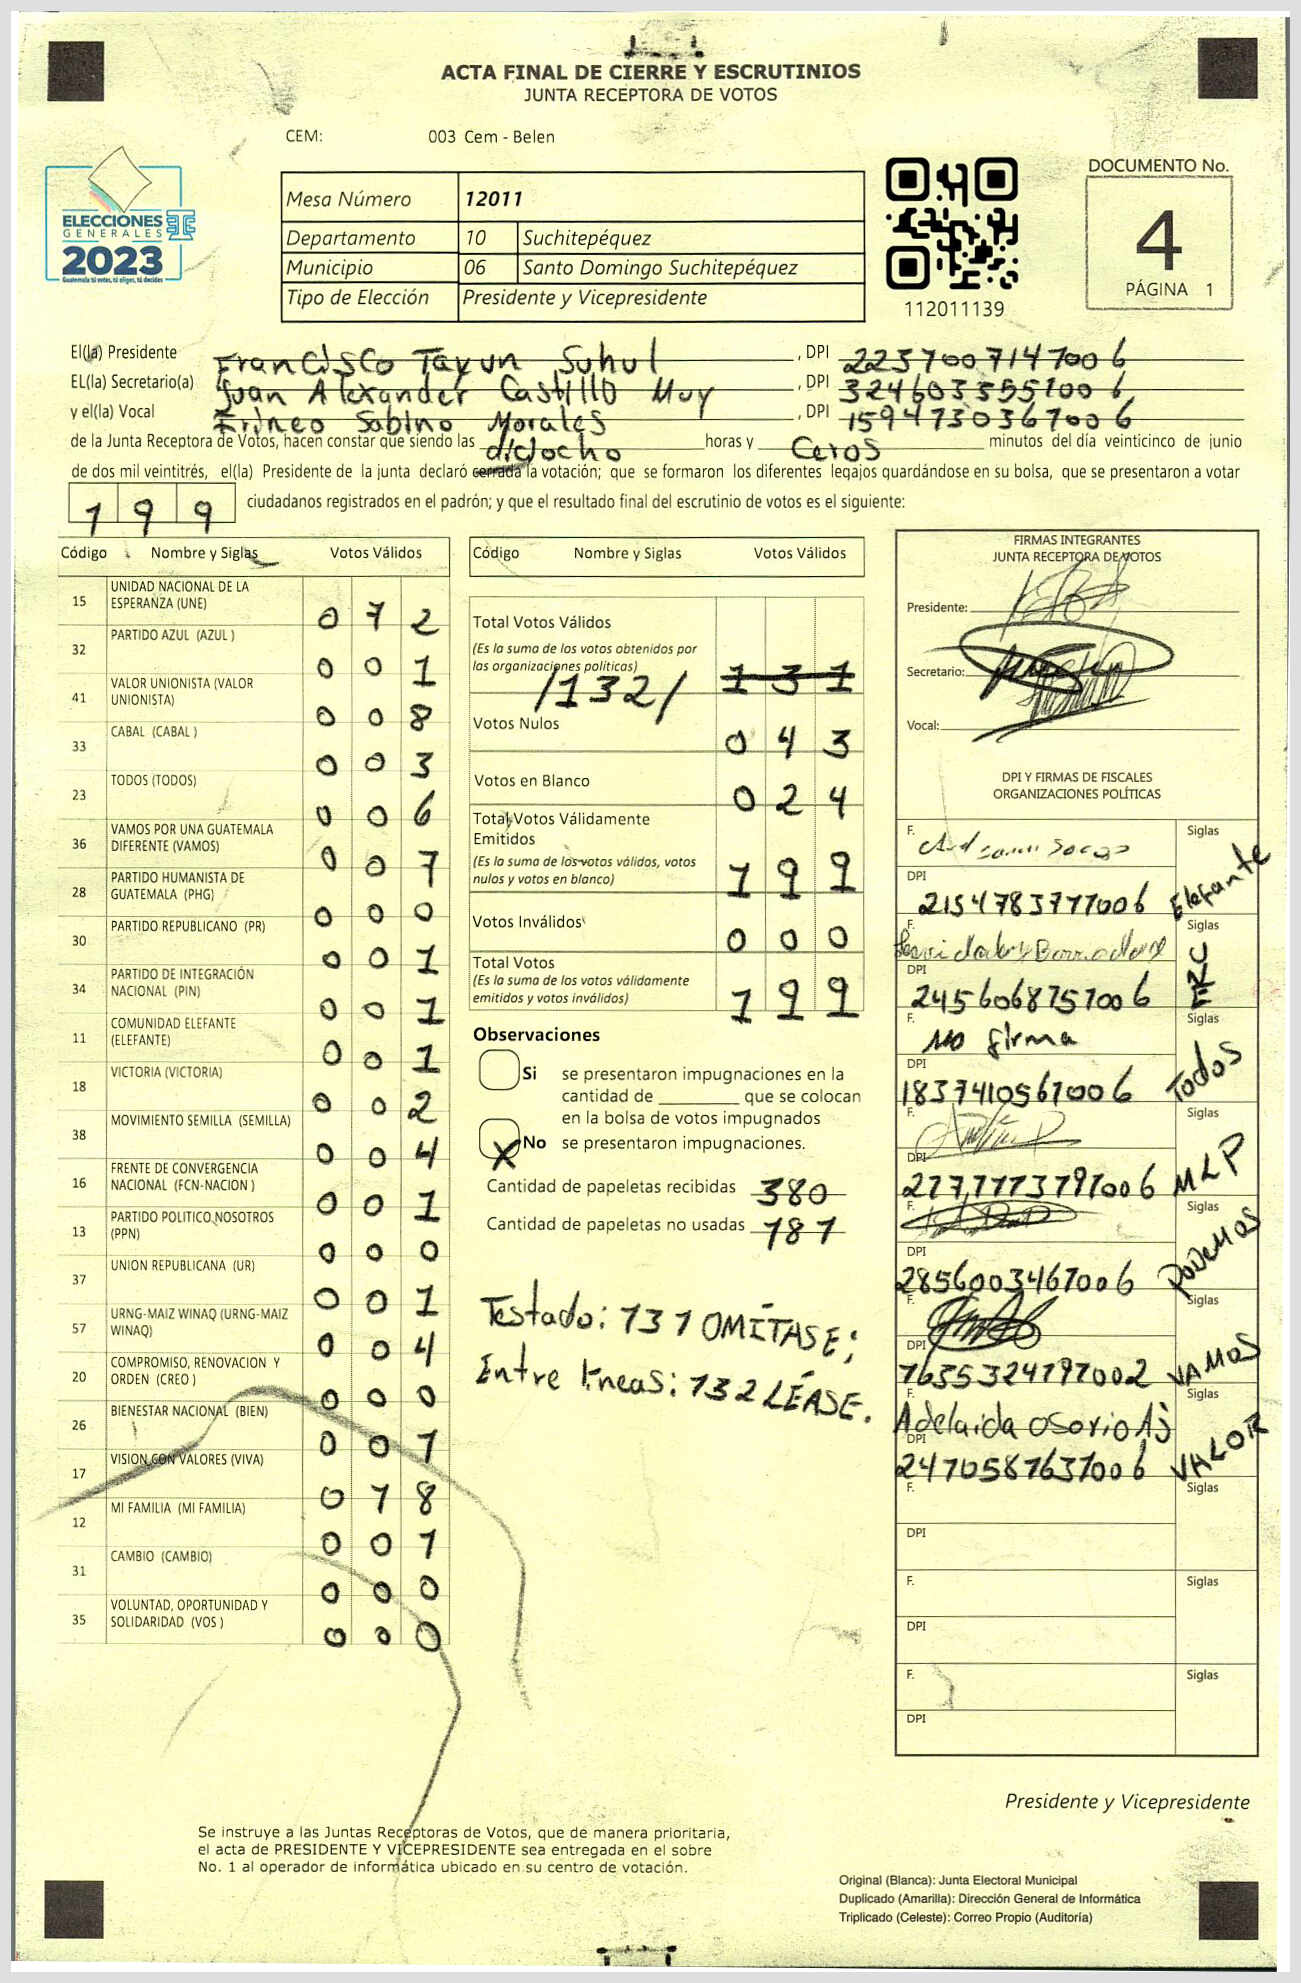 ACTA FINAL DE CIERRE Y ESCRUTINIOS
JUNTA RECEPTORA DE VOTOS
CEM: 003 Cem - Belen
ELECCIONES
GENERALES
2023
Guatemala tú votas, tú eliges, tú decides
Mesa Número 12011
Departamento 10 Suchitepéquez
Municipio 06 Santo Domingo Suchitepéquez
Tipo de Elección Presidente y Vicepresidente
112011139
DOCUMENTO No.
4
PÁGINA 1
El(la) Presidente Francisco Tayun Suhul , DPI 2237007147006
EL(la) Secretario(a) Juan Alexander Castillo Muy , DPI 3246033551006
y el(la) Vocal Erineo Sabino Morales , DPI 1594730367006
de la Junta Receptora de Votos, hacen constar que siendo las diciocho horas y Ceros minutos del día veinticinco de junio
de dos mil veintitrés, el(la) Presidente de la junta declaró cerrada la votación; que se formaron los diferentes legajos guardándose en su bolsa, que se presentaron a votar
199 ciudadanos registrados en el padrón; y que el resultado final del escrutinio de votos es el siguiente:
Código Nombre y Siglas Votos Válidos
15 UNIDAD NACIONAL DE LA
ESPERANZA (UNE) 0 7 2
32 PARTIDO AZUL (AZUL ) 0 0 1
41 VALOR UNIONISTA (VALOR
UNIONISTA) 0 0 8
33 CABAL (CABAL ) 0 0 3
23 TODOS (TODOS) 0 0 6
36 VAMOS POR UNA GUATEMALA
DIFERENTE (VAMOS) 0 0 7
28 PARTIDO HUMANISTA DE
GUATEMALA (PHG) 0 0 0
30 PARTIDO REPUBLICANO (PR) 0 0 1
34 PARTIDO DE INTEGRACIÓN
NACIONAL (PIN) 0 0 1
11 COMUNIDAD ELEFANTE
(ELEFANTE) 0 0 1
18 VICTORIA (VICTORIA) 0 0 2
38 MOVIMIENTO SEMILLA (SEMILLA) 0 0 4
16 FRENTE DE CONVERGENCIA
NACIONAL (FCN-NACION ) 0 0 1
13 PARTIDO POLITICO NOSOTROS
(PPN) 0 0 0
37 UNION REPUBLICANA (UR) 0 0 1
57 URNG-MAIZ WINAQ (URNG-MAIZ
WINAQ) 0 0 4
20 COMPROMISO, RENOVACION Y
ORDEN (CREO ) 0 0 0
26 BIENESTAR NACIONAL (BIEN) 0 0 1
17 VISION CON VALORES (VIVA) 0 1 8
12 MI FAMILIA (MI FAMILIA) 0 0 1
31 CAMBIO (CAMBIO) 0 0 0
35 VOLUNTAD, OPORTUNIDAD Y
SOLIDARIDAD (VOS ) 0 0 0
Código Nombre y Siglas Votos Válidos
Total Votos Válidos
(Es la suma de los votos obtenidos por
las organizaciones políticas) 1 3 1
/132/
Votos Nulos 0 4 3
Votos en Blanco 0 2 4
Total Votos Válidamente
Emitidos
(Es la suma de los votos válidos, votos
nulos y votos en blanco) 1 9 9
Votos Inválidos 0 0 0
Total Votos
(Es la suma de los votos válidamente
emitidos y votos inválidos) 1 9 9
Observaciones
Si se presentaron impugnaciones en la
cantidad de ________ que se colocan
en la bolsa de votos impugnados
X No se presentaron impugnaciones.
Cantidad de papeletas recibidas 380
Cantidad de papeletas no usadas 181
Testado: 131 OMÍTASE;
Entre líneas: 132 LÉASE.
FIRMAS INTEGRANTES
JUNTA RECEPTORA DE VOTOS
Presidente:
Secretario:
Vocal:
DPI Y FIRMAS DE FISCALES
ORGANIZACIONES POLÍTICAS
F. Siglas
DPI 2154783777006 Elefante
F. Siglas
DPI 2456068757006
F. No firma Siglas
DPI 1837410567006 Todos
F. Siglas
DPI 2777773797006 MLP
F. Siglas
DPI 2856003467006 PODEMOS
F. Siglas
DPI 7635324797002 VAMOS
F. Adelaida Osorio Aj Siglas
DPI 2470587637006 VALOR
F. Siglas
DPI
F. Siglas
DPI
F. Siglas
DPI
Presidente y Vicepresidente
Se instruye a las Juntas Receptoras de Votos, que de manera prioritaria,
el acta de PRESIDENTE Y VICEPRESIDENTE sea entregada en el sobre
No. 1 al operador de informática ubicado en su centro de votación.
Original (Blanca): Junta Electoral Municipal
Duplicado (Amarilla): Dirección General de Informática
Triplicado (Celeste): Correo Propio (Auditoría)